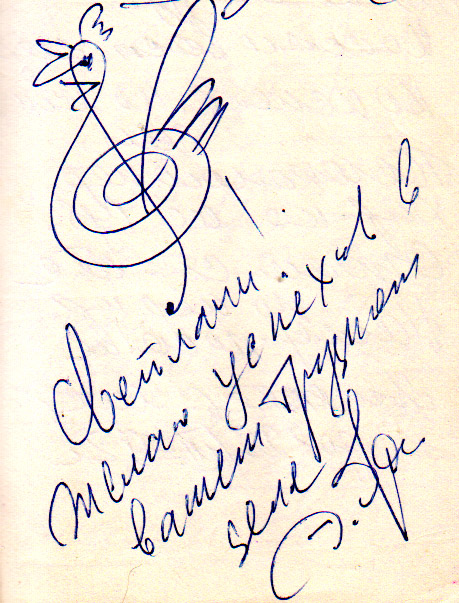 Светлани
желаю успехов в
вашем трудном
деле